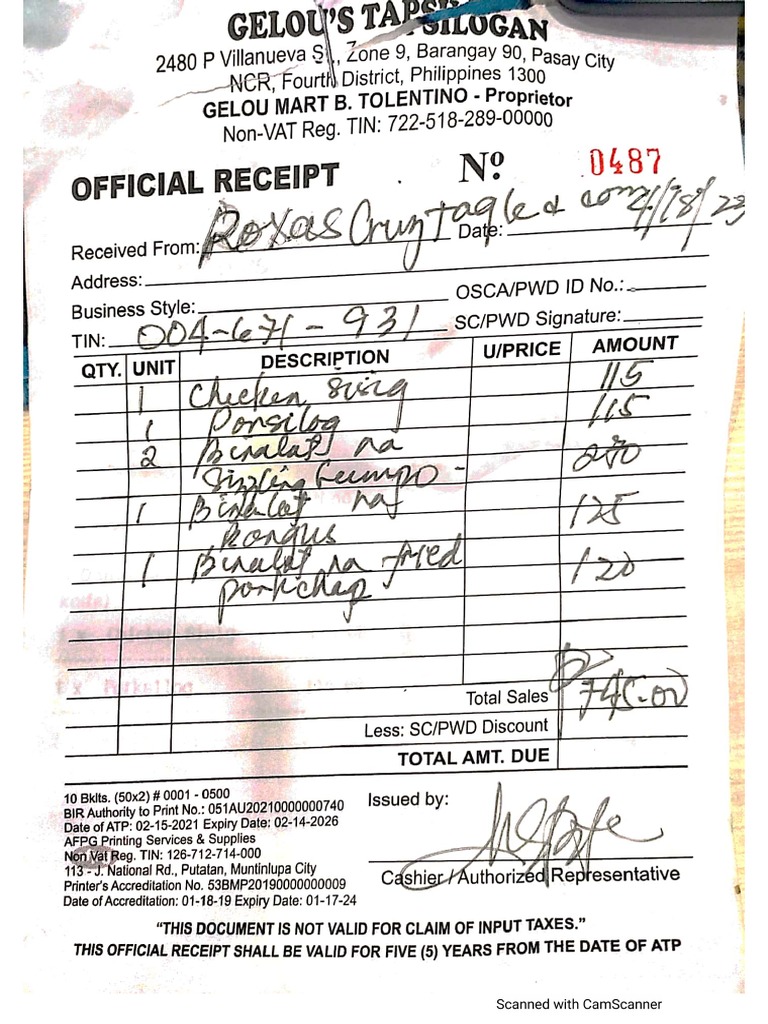 GELOU'S TAPSILOGAN
2480 P Villanueva St., Zone 9, Barangay 90, Pasay City
NCR, Fourth District, Philippines 1300
GELOU MART B. TOLENTINO - Proprietor
Non-VAT Reg. TIN: 722-518-289-00000
OFFICIAL RECEIPT Nº 0487
Received From: Roxas Cruz Tagle & com Date: 4/18/23
Address:
Business Style: OSCA/PWD ID No.:
TIN: 004-671-931 SC/PWD Signature:
QTY. UNIT DESCRIPTION U/PRICE AMOUNT
1 Chicken 115
1 Porsilog 115
2 Binalot na 270
Sizzling Liempo
1 Binalot na 125
Bangus
1 Binalot na fried 120
porkchop
Total Sales 745.00
Less: SC/PWD Discount
TOTAL AMT. DUE
10 Bklts. (50x2) # 0001 - 0500
BIR Authority to Print No.: 051AU20210000000740
Date of ATP: 02-15-2021 Expiry Date: 02-14-2026
AFPG Printing Services & Supplies
Non Vat Reg. TIN: 126-712-714-000
113 - J. National Rd., Putatan, Muntinlupa City
Printer's Accreditation No. 53BMP20190000000009
Date of Accreditation: 01-18-19 Expiry Date: 01-17-24
Issued by:
Cashier / Authorized Representative
"THIS DOCUMENT IS NOT VALID FOR CLAIM OF INPUT TAXES."
THIS OFFICIAL RECEIPT SHALL BE VALID FOR FIVE (5) YEARS FROM THE DATE OF ATP
Scanned with CamScanner